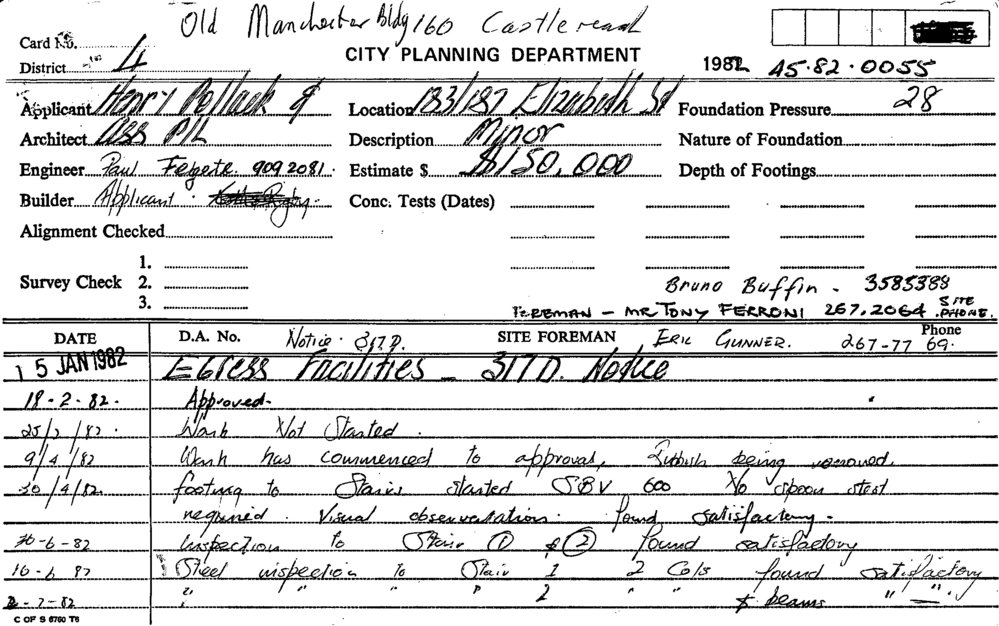 Old Manchester Bldg 160 Castlereagh
Card No.
CITY PLANNING DEPARTMENT
District 4
1982 45.82.0055
Applicant Henry Pollack &
Location 183/187 Elizabeth St
Foundation Pressure 28
Architect Ass P/L
Description Minor
Nature of Foundation
Engineer Paul 909 2081.
Estimate $ $150,000
Depth of Footings
Builder Applicant. Rigby.
Conc. Tests (Dates)
Alignment Checked
Survey Check 1. 2. 3.
Bruno Buffin - 3585388
FOREMAN - MR TONY FERRONI 267.2064 SITE PHONE.
DATE D.A. No. Notice. 317D. SITE FOREMAN ERIC GUNNER. Phone 267-77 69.
15 JAN 1982 EGRESS Facilities - 317D. Notice
18-2-82. Approved.
25/2/82. Work Not Started.
9/4/82 Work has commenced to approval, Rubbish being removed.
30/4/82. footing to Stairs started SBV 600 No steel
required. Visual observation. found satisfactory.
-6-82 Inspection to Stair 1 & 2 found satisfactory
10-6 82 Steel inspection to Stair 1 2 Cols found satisfactory
2-7-82 " " " 2 " " & beams " - "
C OF S 6760 T6